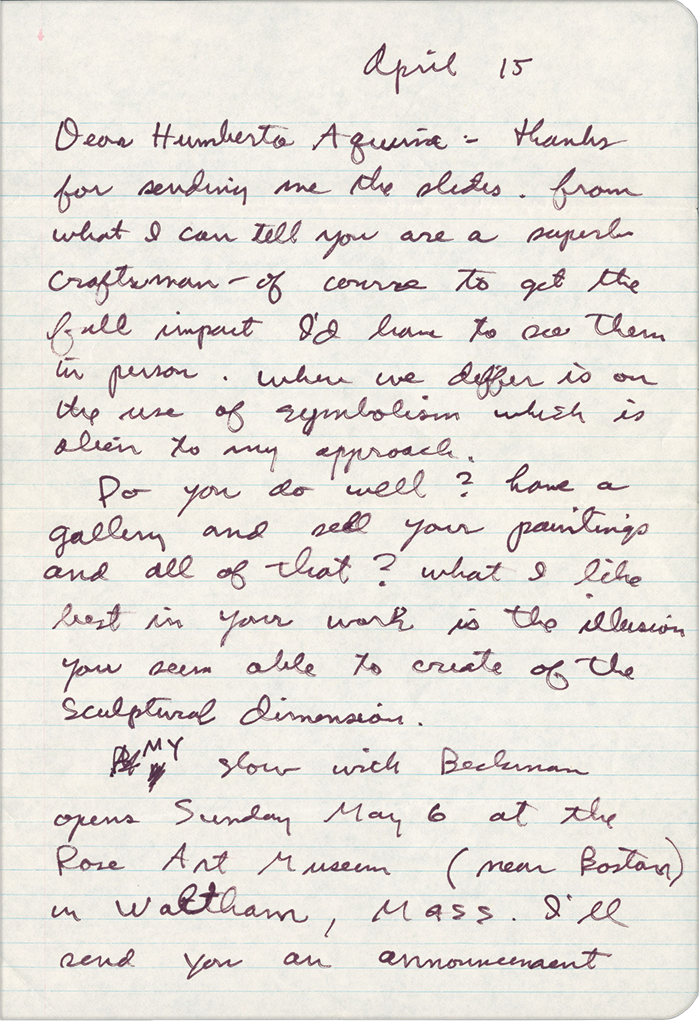 April 15
Dear Humberto Aquino – thanks
for sending me the slides. from
what I can tell you are a superb
craftsman – of course to get the
full impact I'd have to see them
in person. where we differ is on
the use of symbolism which is
alien to my approach.
Do you do well? have a
gallery and sell your paintings
and all of that? what I like
best in your work is the illusion
you seem able to create of the
sculptural dimension.
MY show with Beckman
opens Sunday May 6 at the
Rose Art Museum (near Boston)
in Waltham, Mass. I'll
send you an announcement